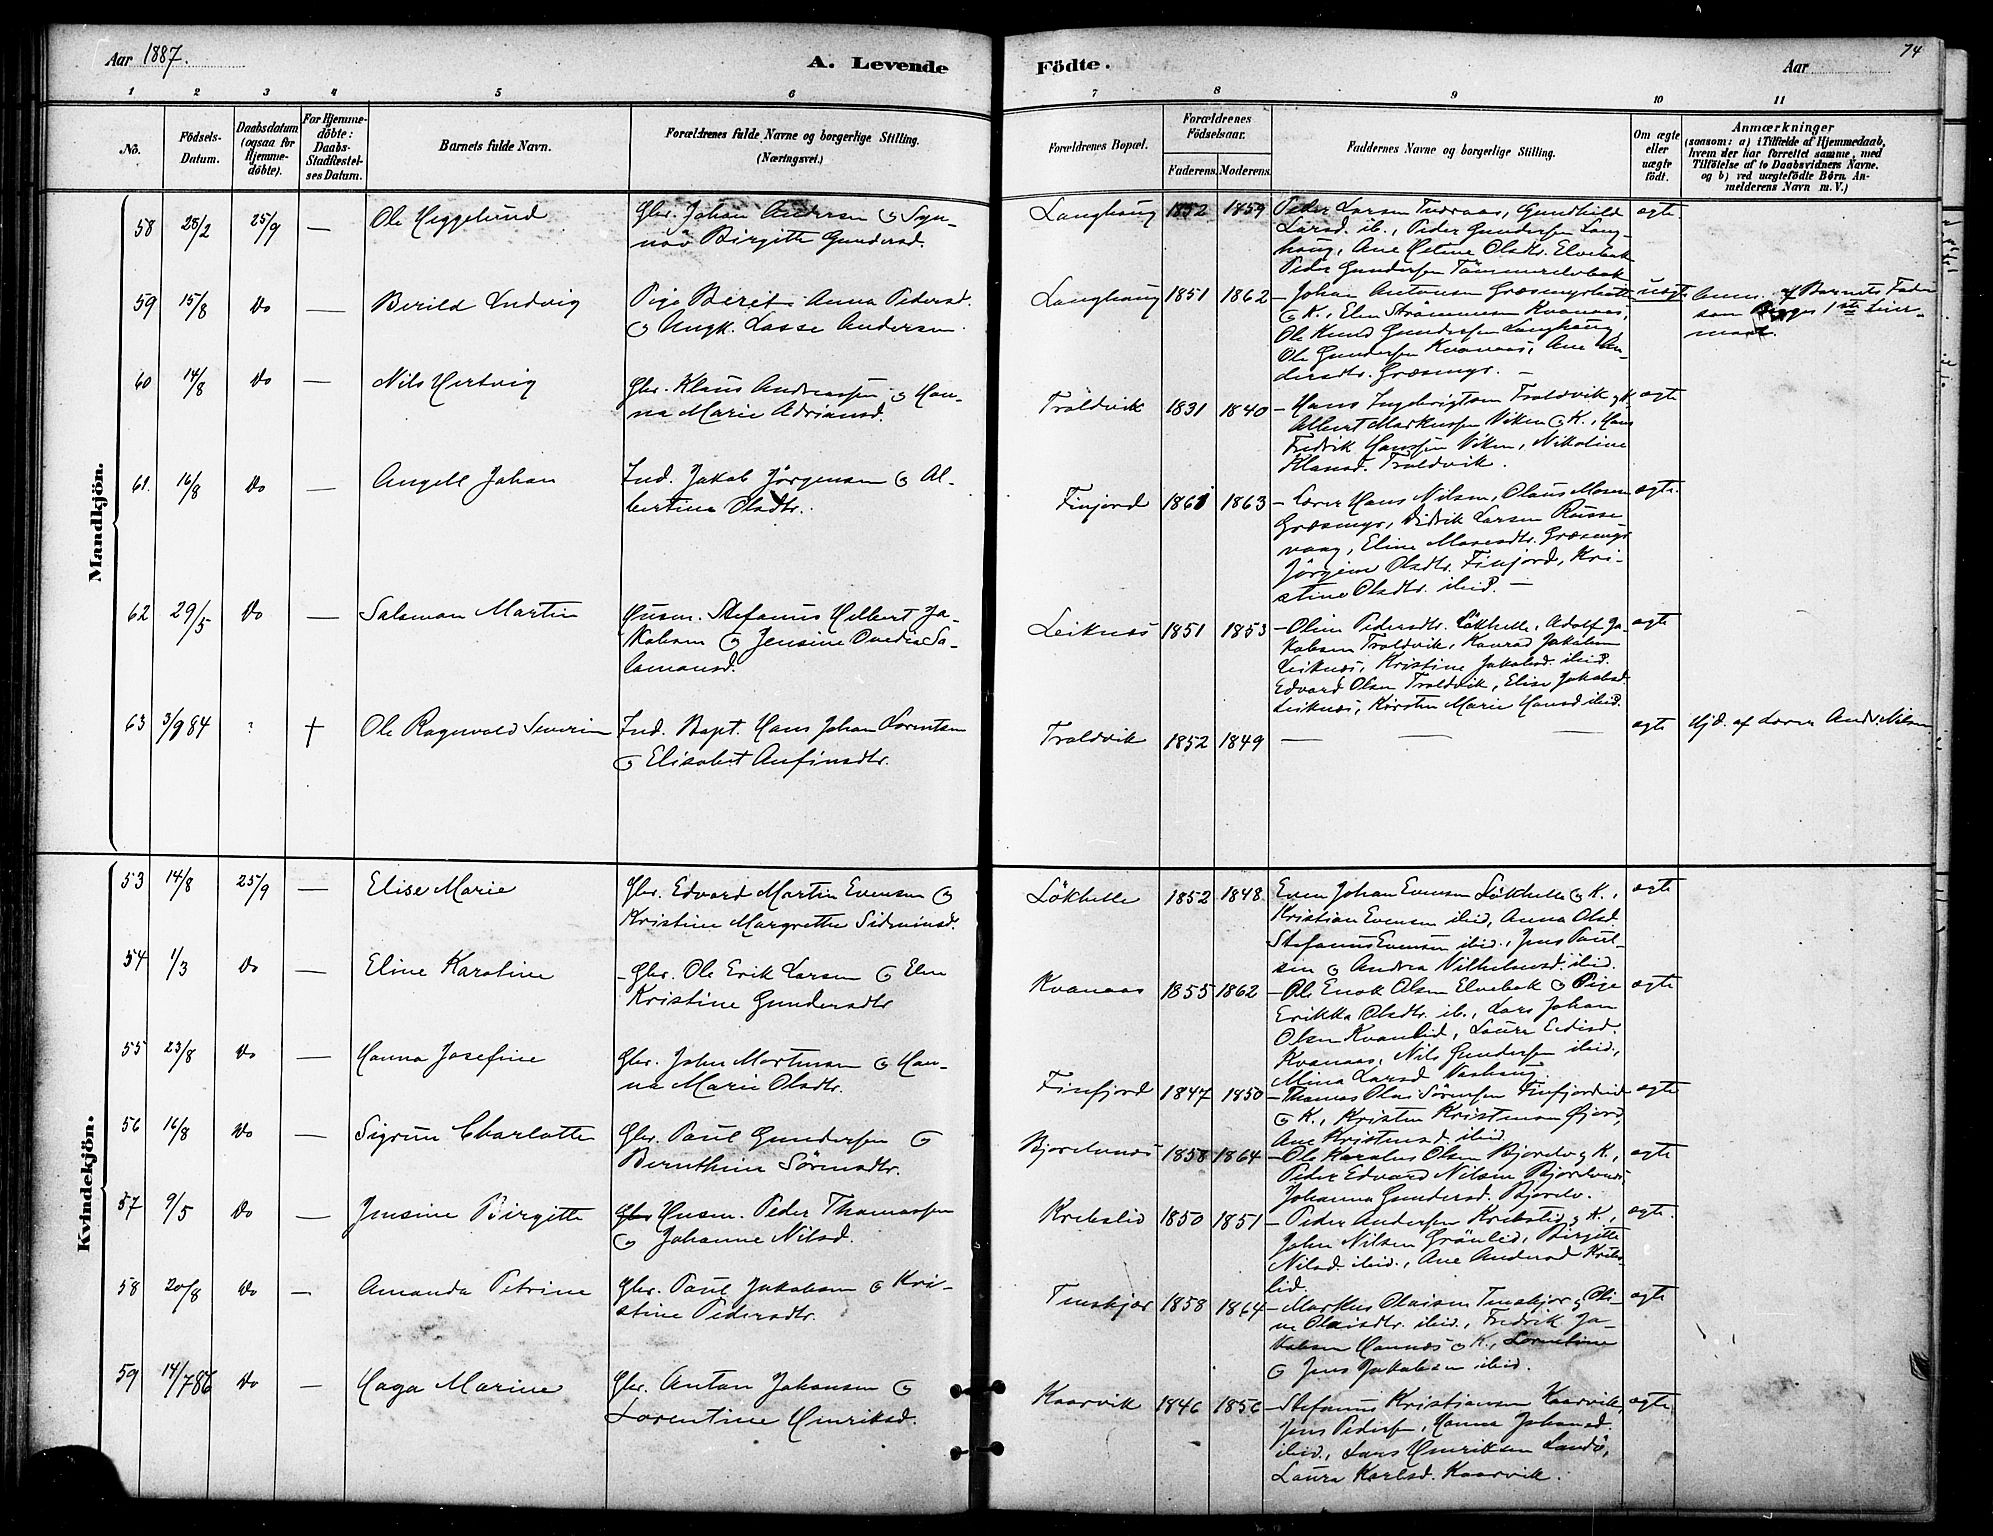 Aar 1887.
A. Levende
Födte.
Aar
74
1 2 3 4 5 6 7 8 9 10 11
No.
Födsels-Datum.
Daabsdatum (ogsaa for Hjemme-döbte).
For Hjemme-döbte: Daabs-Stadfæstel-ses Datum.
Barnets fulde Navn.
Forældrenes fulde Navne og borgerlige Stilling.
(Næringsvei.)
Forældrenes Bopæl.
Forældrenes Födselsaar.
Faderens. Moderens.
Faddernes Navne og borgerlige Stilling.
Om ægte eller uægte födt.
Anmærkninger
(saasom: a) i Tilfælde af Hjemmedaab, hvem der har forrettet samme, med Tilföielse af to Daabsvidners Navne. og b) ved uægtefödte Börn Anmelderens Navn m. V.)
Mandkjön.
58 25/2 25/9 — Ole Heggelund
Gbr. Johan Andersen & Syn-
növ Birgitte Gundersd.
Langhaug 1852 1859
Peder Larsen Tudraas, Gundhild
Larsd. ib., Peder Gundersen Lang-
haug, Ane Olsdtr. Elvebak
Peder Gundersen Tömmerelvbak
ægte
59 15/8 Do — Berild Ludvig
Pige Berit Anna Pedersd.
& Ungk. Lasse Andersen.
Langhaug 1851 1862
— Johan Antonsen
& K., Elen Strömmesen Kvanaas,
Ole Knud Gundersen Langhaug,
Ole Gundersen Kvanaas, Ane An-
dersdtr. Græsmyr. —
uægte
Anm. af Barnets Fader
som Begges 1ste Leier-
maal.
60 14/8 Do — Nils Hertvig
Gbr. Klaus Andreassen & Han-
na Marie Adriansd.
Troldvik 1831 1840
— Hans Ingebrigtsen Troldvik & K.
Albert Markussen Viken & K., Hans
Fredrik Hanssen Viken, Nikoline
Klausd. Troldvik.
ægte
61. 16/8 Do — Angell Johan
Ind. Jakob Jörgensen & Al-
bertine Olsdtr.
Finjord 1861 1863
— Lærer Hans Nilsen, Olaus Mosen
Græsmyr, Didrik Larsen Russe
vaag, Eline Mosesdtr. Græsmyr
Jörgine Olsdtr. Finjord, Kri-
stine Olsdtr. ibid. —
ægte.
62 29/5 Do — Salamon Martin
Husm. Stefanus Helbert Ja-
kobsen & Jensine Ovedia Sa-
lamonsd.
Leiknæs 1851 1853
— Oline Pedersdtr. Lökhelle, Adolf Ja-
kobsen Troldvik, Konrad Jakobsen
Leiknæs, Kristine Jakobsd. ibid.
Edvard Olsen Troldvik, Elise Jakobsd.
Leiknæs, Kirsten Marie Hansd ibid.
ægte
63 3/9 84 : † Ole Ragnvald Severin
Ind. Bapt. Hans Johan Lorentsen
& Elisabet Anfinsdtr.
Troldvik 1852 1849
— — —
ægte
Hjd. af Lærer Andr. Nilsen
Kvindekjön.
53 14/8 25/9 — Elise Marie
Gbr. Edvard Martin Evensen &
Kristine Margrethe
Lökhelle 1852 1848
Even Johan Evensen Lökhelle & K.,
Kristian Evensen ibid, Anna Olsd.
Stefanus Evensen ibid., Jens Paul-
sen & Andrea Vilhelmsd. ibid.
ægte
54 1/3 Do — Eline Karoline
Gbr. Ole Erik Larsen & Elen
Kristine Gundersdtr
Kvanaas 1855 1862
— Ole Enok Olsen Elvebak & Pige
Erikka Olsdtr. ib., Lars Johan
Olsen Kvanlid, Laura
Kvanaas, Nils Gundersen ibid,
Mina Larsd
ægte
55 23/8 Do — Hanna Josefine
Gbr. John Mortensen & Han-
na Marie Olsdtr.
Finfjord 1847 1850
— Thomas Olai Sörensen Finfjordeid
& K., Kristen Kristensen
Ane Kristensd. ibid.
ægte
56 16/8 Do — Sigrun Charlotte
Gbr. Paul Gundersen &
Bernthine Sörensdtr.
Bjorelvnæs 1858 1864
— Ole Karelius Olsen Bjorelv & K.,
Peder Edvard Nilsen Bjorelvnæs
Johanna Gundersd. Bjorelv.
ægte
57 9/5 Do — Jensine Birgitte
Gbr Husm. Peder Thomassen
& Johanne Nilsd.
Krebslid 1850 1851
— Peder Andersen Krebslid & K.,
John Nilsen Grönlid, Birgitte
Nilsd. ibid., Ane Andersd Krebs-
lid.
ægte.
58 20/8 Do — Amanda Petrine
Gbr. Paul Jakobsen & Kri-
stine Pedersdtr.
Finskjær 1858 1864
— Markus Olaisen Finskjær & Oli-
ne Olaisdtr. ibid., Fredrik Ja-
kobsen Hannæs & K.,
& Jens Jakobsen ibid.
ægte
59 14/7 86 Do — Haga Marine
Gbr. Anton Johansen &
Lorentine Henriksd.
Kaarvik 1846 1856
— Stefanus Kristiansen Kaarvik,
Jens Peders, Hanna Johansd
ibid., Lars Henriksen
Laura Karlsd. Kaarvik.
ægte